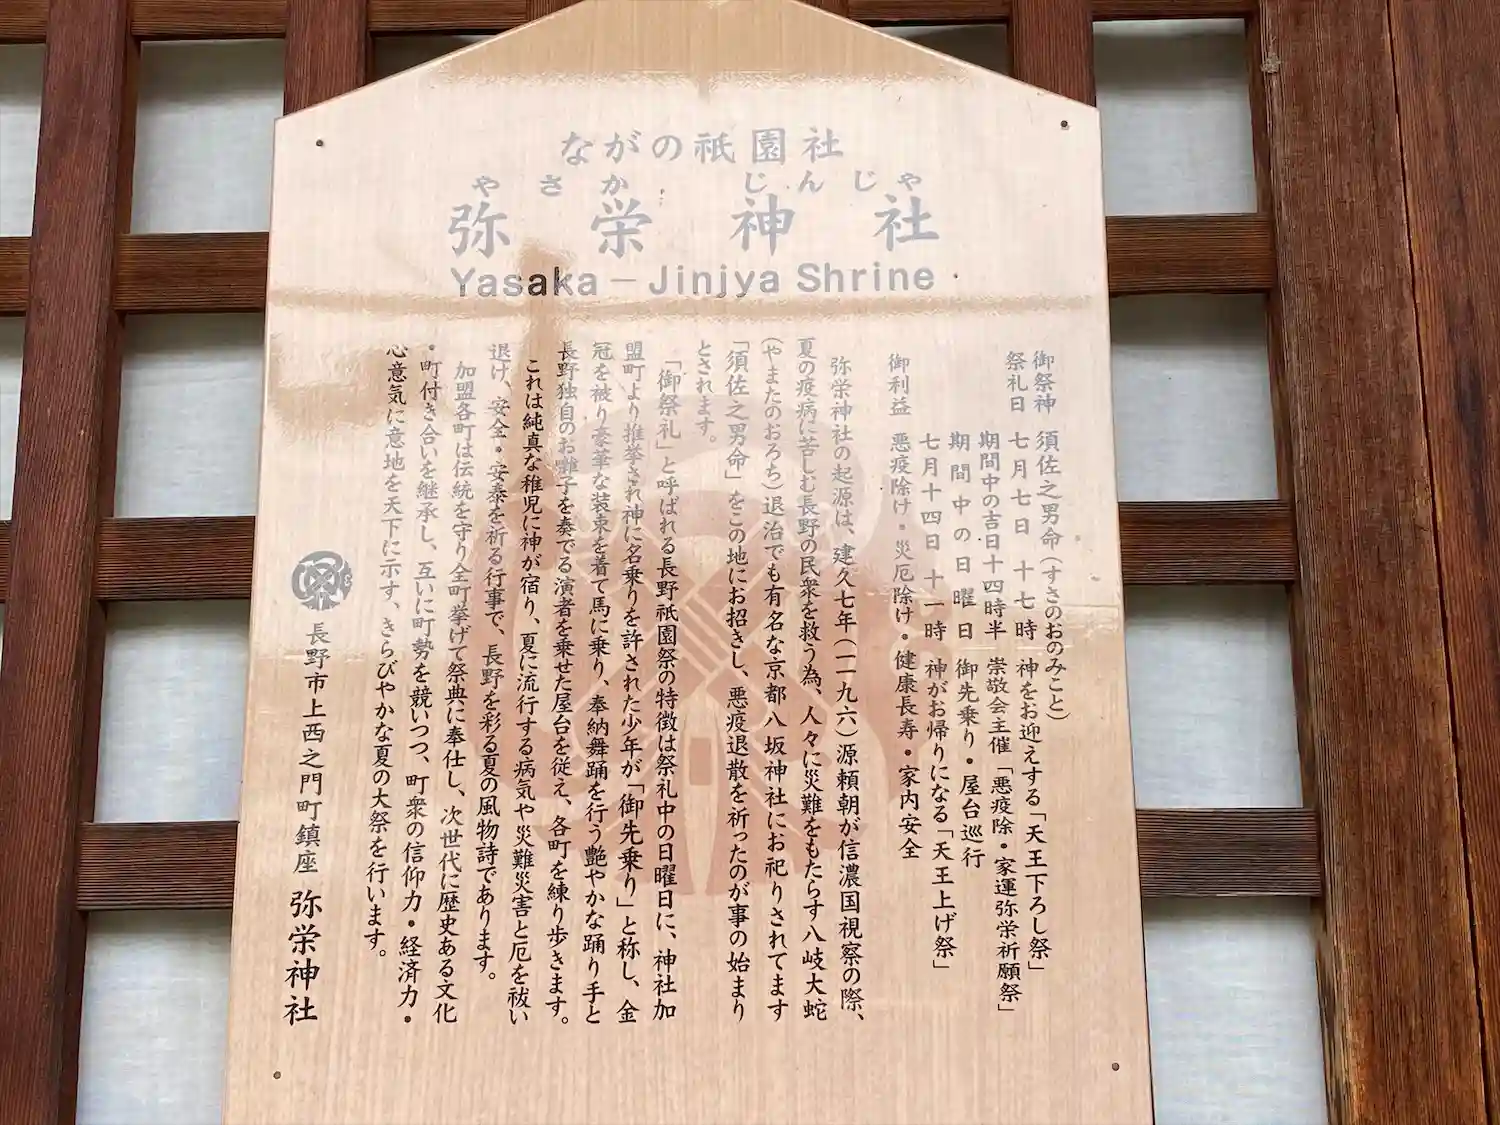 ながの祇園社
やさか じんじゃ
弥栄神社
Yasaka－Jinjya Shrine
御祭神 須佐之男命（すさのおのみこと）
祭礼日 七月七日 十七時 神をお迎えする「天王下ろし祭」
期間中の吉日十四時半 崇敬会主催「悪疫除・家運弥栄祈願祭」
期間中の日曜日 御先乗り・屋台巡行
七月十四日 十一時 神がお帰りになる「天王上げ祭」
御利益 悪疫除け・災厄除け・健康長寿・家内安全
弥栄神社の起源は、建久七年（一一九六）源頼朝が信濃国視察の際、
夏の疫病に苦しむ長野の民衆を救う為、人々に災難をもたらす八岐大蛇
（やまたのおろち）退治でも有名な京都八坂神社にお祀りされてます
「須佐之男命」をこの地にお招きし、悪疫退散を祈ったのが事の始まり
とされます。
「御祭礼」と呼ばれる長野祇園祭の特徴は祭礼中の日曜日に、神社加
盟町より推挙され神に名乗りを許された少年が「御先乗り」と称し、金
冠を被り豪華な装束を着て馬に乗り、奉納舞踊を行う艶やかな踊り手と
長野独自のお囃子を奏でる演者を乗せた屋台を従え、各町を練り歩きます。
これは純真な稚児に神が宿り、夏に流行する病気や災難災害と厄を祓い
退け、安全・安泰を祈る行事で、長野を彩る夏の風物詩であります。
加盟各町は伝統を守り全町挙げて祭典に奉仕し、次世代に歴史ある文化
・町付き合いを継承し、互いに町勢を競いつつ、町衆の信仰力・経済力・
心意気に意地を天下に示す、きらびやかな夏の大祭を行います。
長野市上西之門町鎮座 弥栄神社